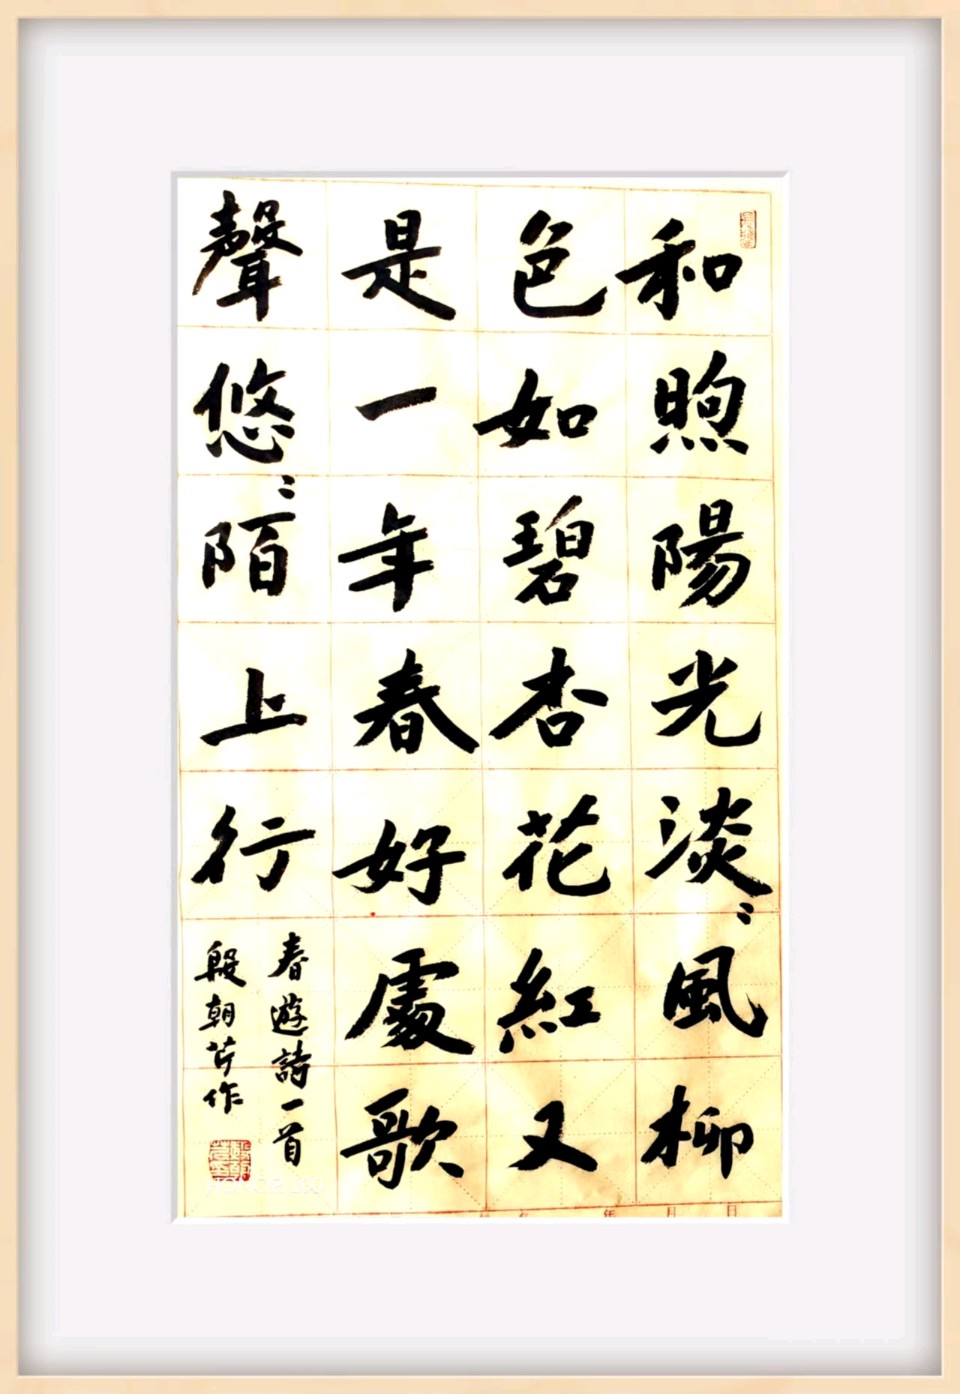 和煦陽光淡〻風柳
色如碧杏花紅又
是一年春好處歌
聲悠〻陌上行
春遊詩一首
殷朝芹作
年 月 日